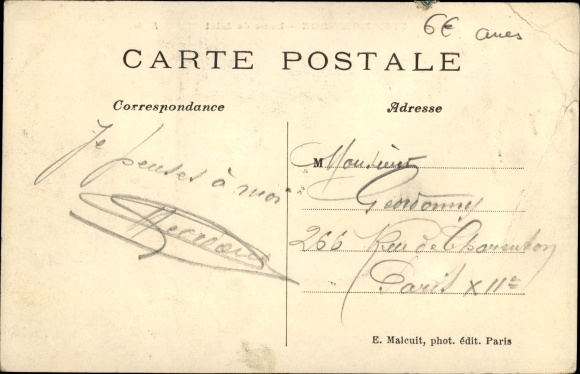 6€ anes
CARTE POSTALE
Correspondance
Adresse
Je penses à moi
M Monsieur
266 Rue de Charenton
Paris XIIe
E. Malcuit, phot. édit. Paris